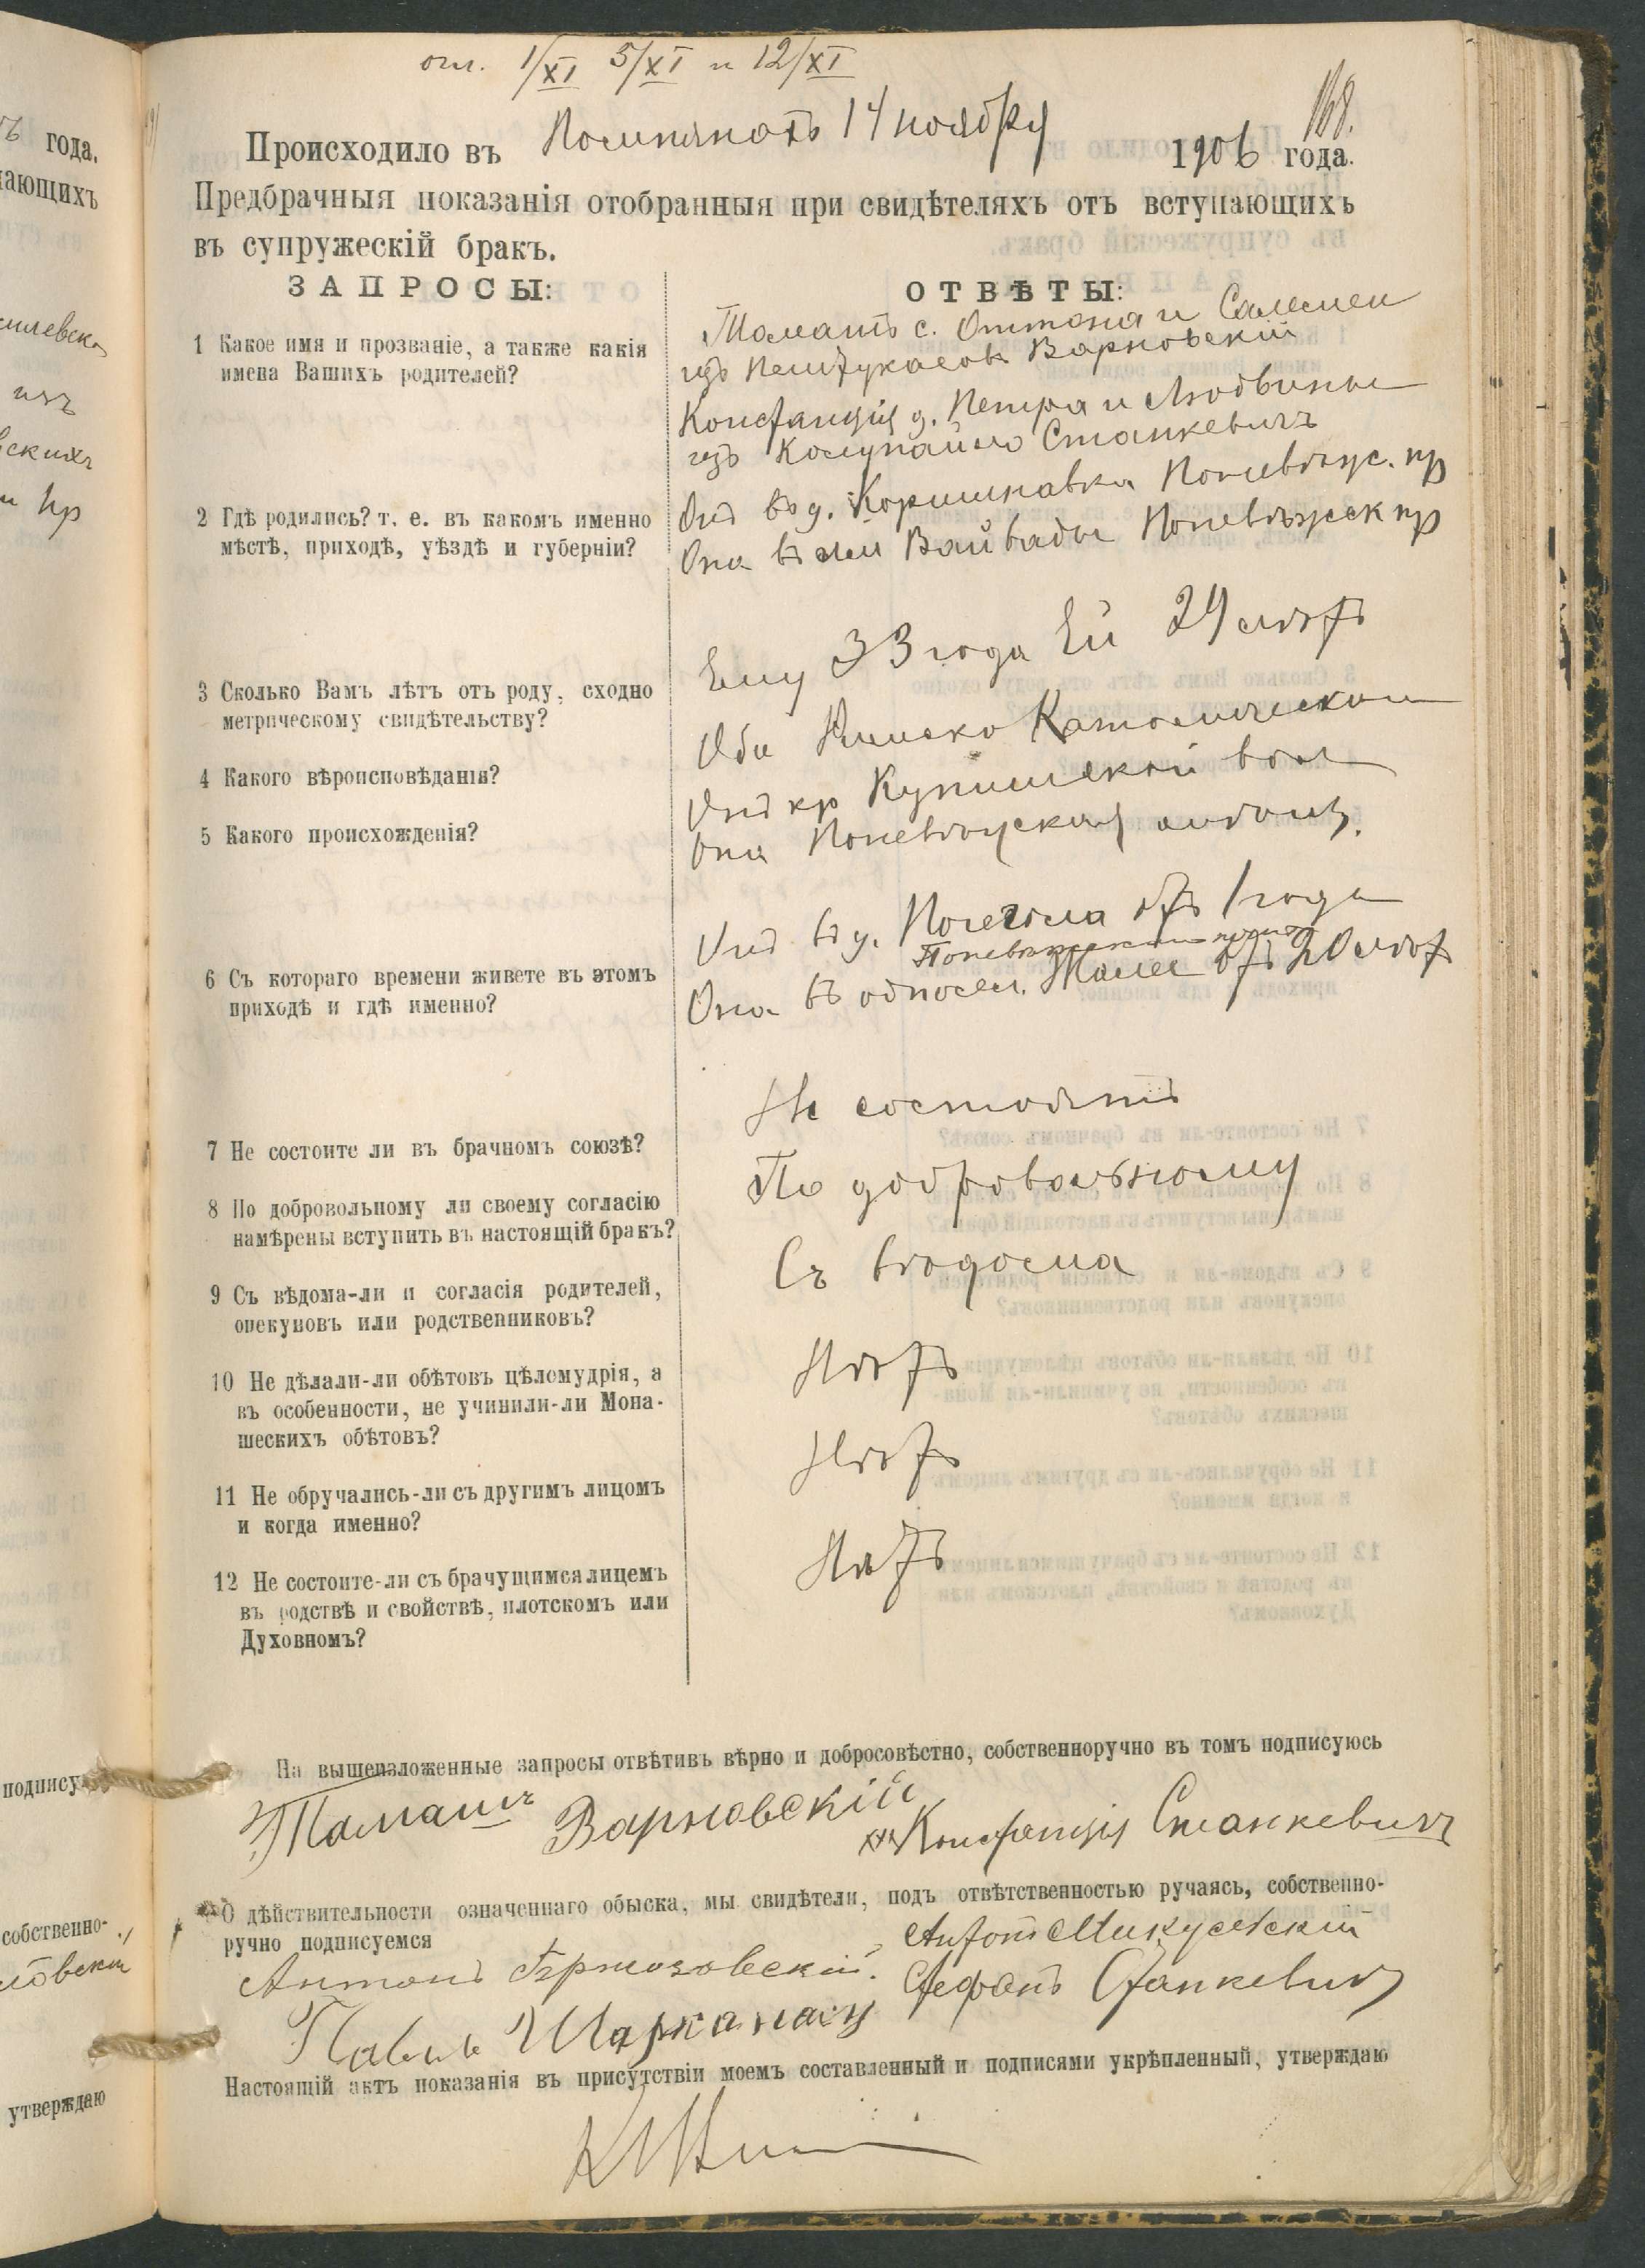 огл. 1/XI 5/XI и 12/XI
168.
Происходило въ 14 ноября 1906 года.
Предбрачныя показанія отобранныя при свидѣтеляхъ отъ вступающихъ
въ супружескій бракъ.
ЗАПРОСЫ:
ОТВѢТЫ:
1 Какое имя и прозваніе, а также какія
имена Вашихъ родителей?
Томашъ с. Оттона и Саломеи
изъ Варновскій
Констанція д. Петра и Людвины
изъ Станкевичъ
2 Гдѣ родились? т. е. въ какомъ именно
мѣстѣ, приходѣ, уѣздѣ и губерніи?
Онъ въ д. Поневѣжс. пр
Она въ им Вайвады Поневѣжск пр
3 Сколько Вамъ лѣтъ отъ роду, сходно
метрическому свидѣтельству?
Ему 33 года Ей 24 лѣтъ
4 Какого вѣроисповѣданія?
Оби Римско Католическаго
5 Какого происхожденія?
Онъ кр Купишской вол
Она Поневѣжская
6 Съ котораго времени живете въ этомъ
приходѣ и гдѣ именно?
Онъ въ д. отъ 1 года
Она въ односел. отъ 20 лѣтъ
7 Не состоите ли въ брачномъ союзѣ?
Не состоятъ
8 По добровольному ли своему согласію
намѣрены вступить въ настоящій бракъ?
По добровольному
9 Съ вѣдома-ли и согласія родителей,
опекуновъ или родственниковъ?
Съ вѣдома
10 Не дѣлали-ли обѣтовъ цѣломудрія, а
въ особенности, не учинили-ли Мона-
шескихъ обѣтовъ?
Нѣтъ
11 Не обручались-ли съ другимъ лицомъ
и когда именно?
Нѣтъ
12 Не состоите-ли съ брачущимся лицемъ
въ родствѣ и свойствѣ, плотскомъ или
Духовномъ?
Нѣтъ
На вышеизложенные запросы отвѣтивъ вѣрно и добросовѣстно, собственноручно въ томъ подписуюсь
Томашъ Варновскій
Констанція Станкевичъ
О дѣйствительности означеннаго обыска, мы свидѣтели, подъ отвѣтственностью ручаясь, собственно-
ручно подписуемся
Антонъ
Антонъ
Стефанъ Станкевичъ
Настоящій актъ показанія въ присутствіи моемъ составленный и подписями укрѣпленный, утверждаю